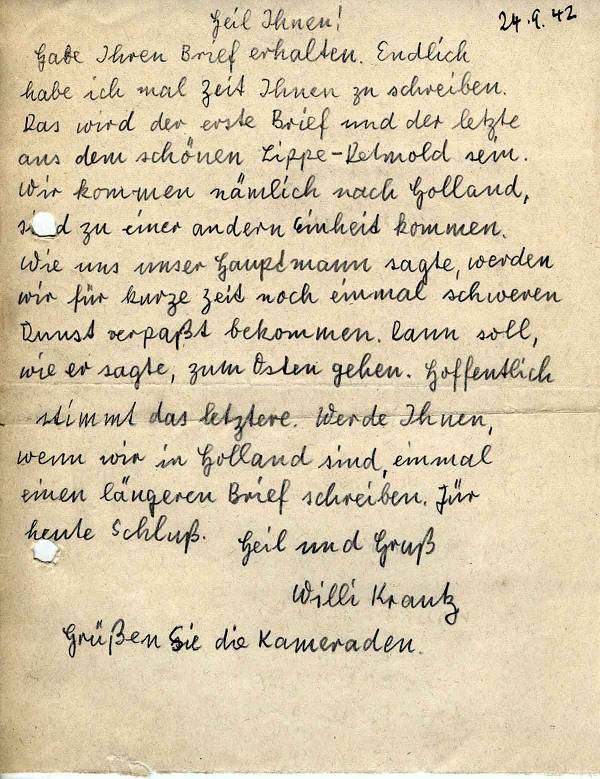 Heil Ihnen!
24.9.42
Habe Ihren Brief erhalten. Endlich
habe ich mal Zeit Ihnen zu schreiben.
Das wird der erste Brief und der letzte
aus dem schönen Lippe-Detmold sein.
Wir kommen nämlich nach Holland,
sind zu einer andern Einheit kommen.
Wie uns unser Hauptmann sagte, werden
wir für kurze Zeit noch einmal schweren
Dunst verpaßt bekommen. Dann soll,
wie er sagte, zum Osten gehen. Hoffentlich
stimmt das letztere. Werde Ihnen,
wenn wir in Holland sind, einmal
einen längeren Brief schreiben. Für
heute Schluß.
Heil und Gruß
Willi Krantz
Grüßen Sie die Kameraden.